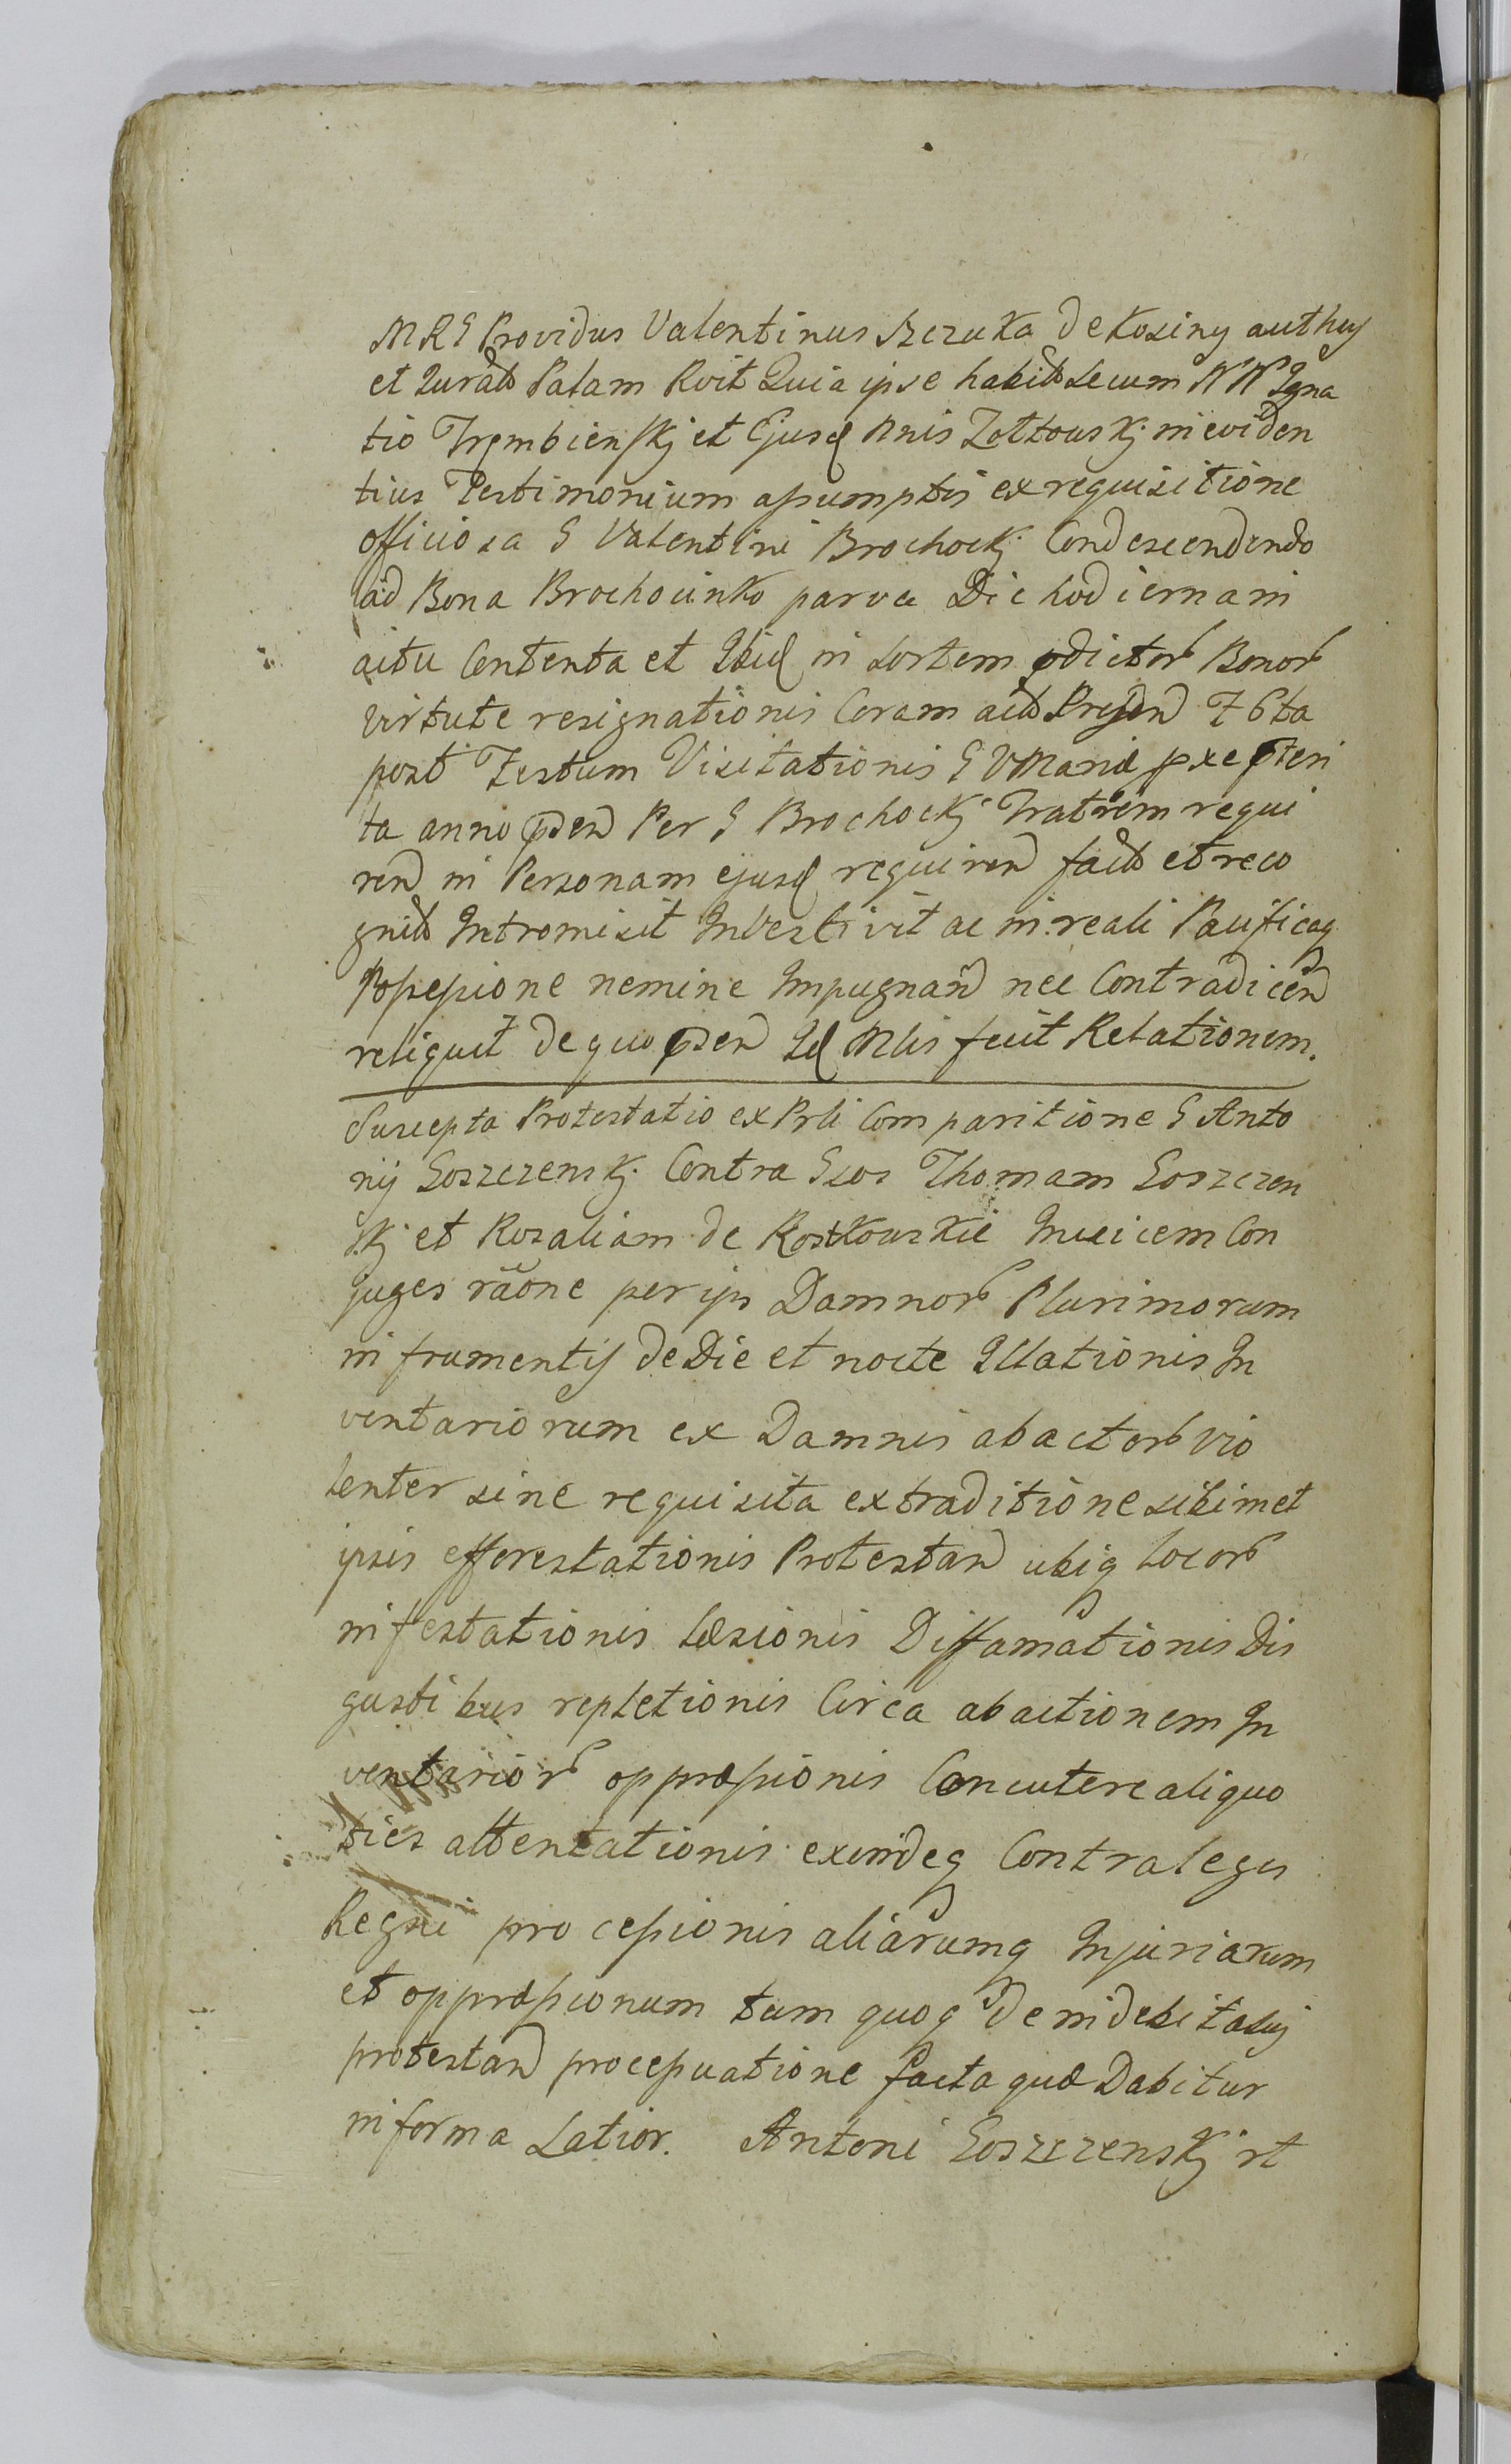 MRG Providus Valentinus Szczuka de Kosiny authus
et Jurats Palam Rvit Quia ipse habits secum NN Igna
tio Trembienskj et Ejusd Nnis Zottowskj in eviden
tius Testimonium assumptis ex requisitione
officiosa G Valentini Brochockj Condescendendo
ad Bona Brochocinko parva Die hodierna in
actu Contenta et Ibid in sortem pdictorb Bonorb
virtute resignationis Coram acts Presen F 6ta
post Festum Visitationis B V Mariæ pxe pteri
ta anno psen Per G Brochockj Fratrem requi
ren in Personam ejusd requiren facts et reco
gnits Intromisit Investivit ac in reali Pacificaq
Possessione nemine Impugnan nec Contradicen
reliquit de quo psen Id Mlis fecit Relationem.
Suscepta Protestatio ex Prli Comparitione G Anto
nij Goszczenskj Contra Gsos Thomam Goszczen
skj et Rozaliam de Rostkowskie Invicem Con
juges rãone per ips Damnorb Plurimorum
in frumentis de Die et nocte Illationis In
ventariorum ex Damnis abactorb vio
lenter sine requisita extraditione sibimet
ipsis efforestationis Protestan ubiq locorb
infestationis læsionis Diffamationis Dis
gustibus repletionis Circa abactionem In
ventariorb oppræssionis Concutere aliquo
ties attentationis exindeq Contra leges
Regni processionis aliarumq Injuriarum
et oppræssionum tum quoq de indebita suj
protestan processuatione facta quæ Dabitur
in forma Latior. Antoni Goszczenskj rt